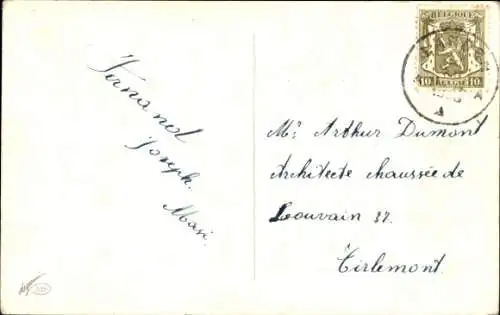 Fernand
Joseph.
Mari.
BELGIQUE
10 10
BELGIË
A
Mr Arthur Dumont
Architecte chaussée de
Louvain 87.
Tirlemont.